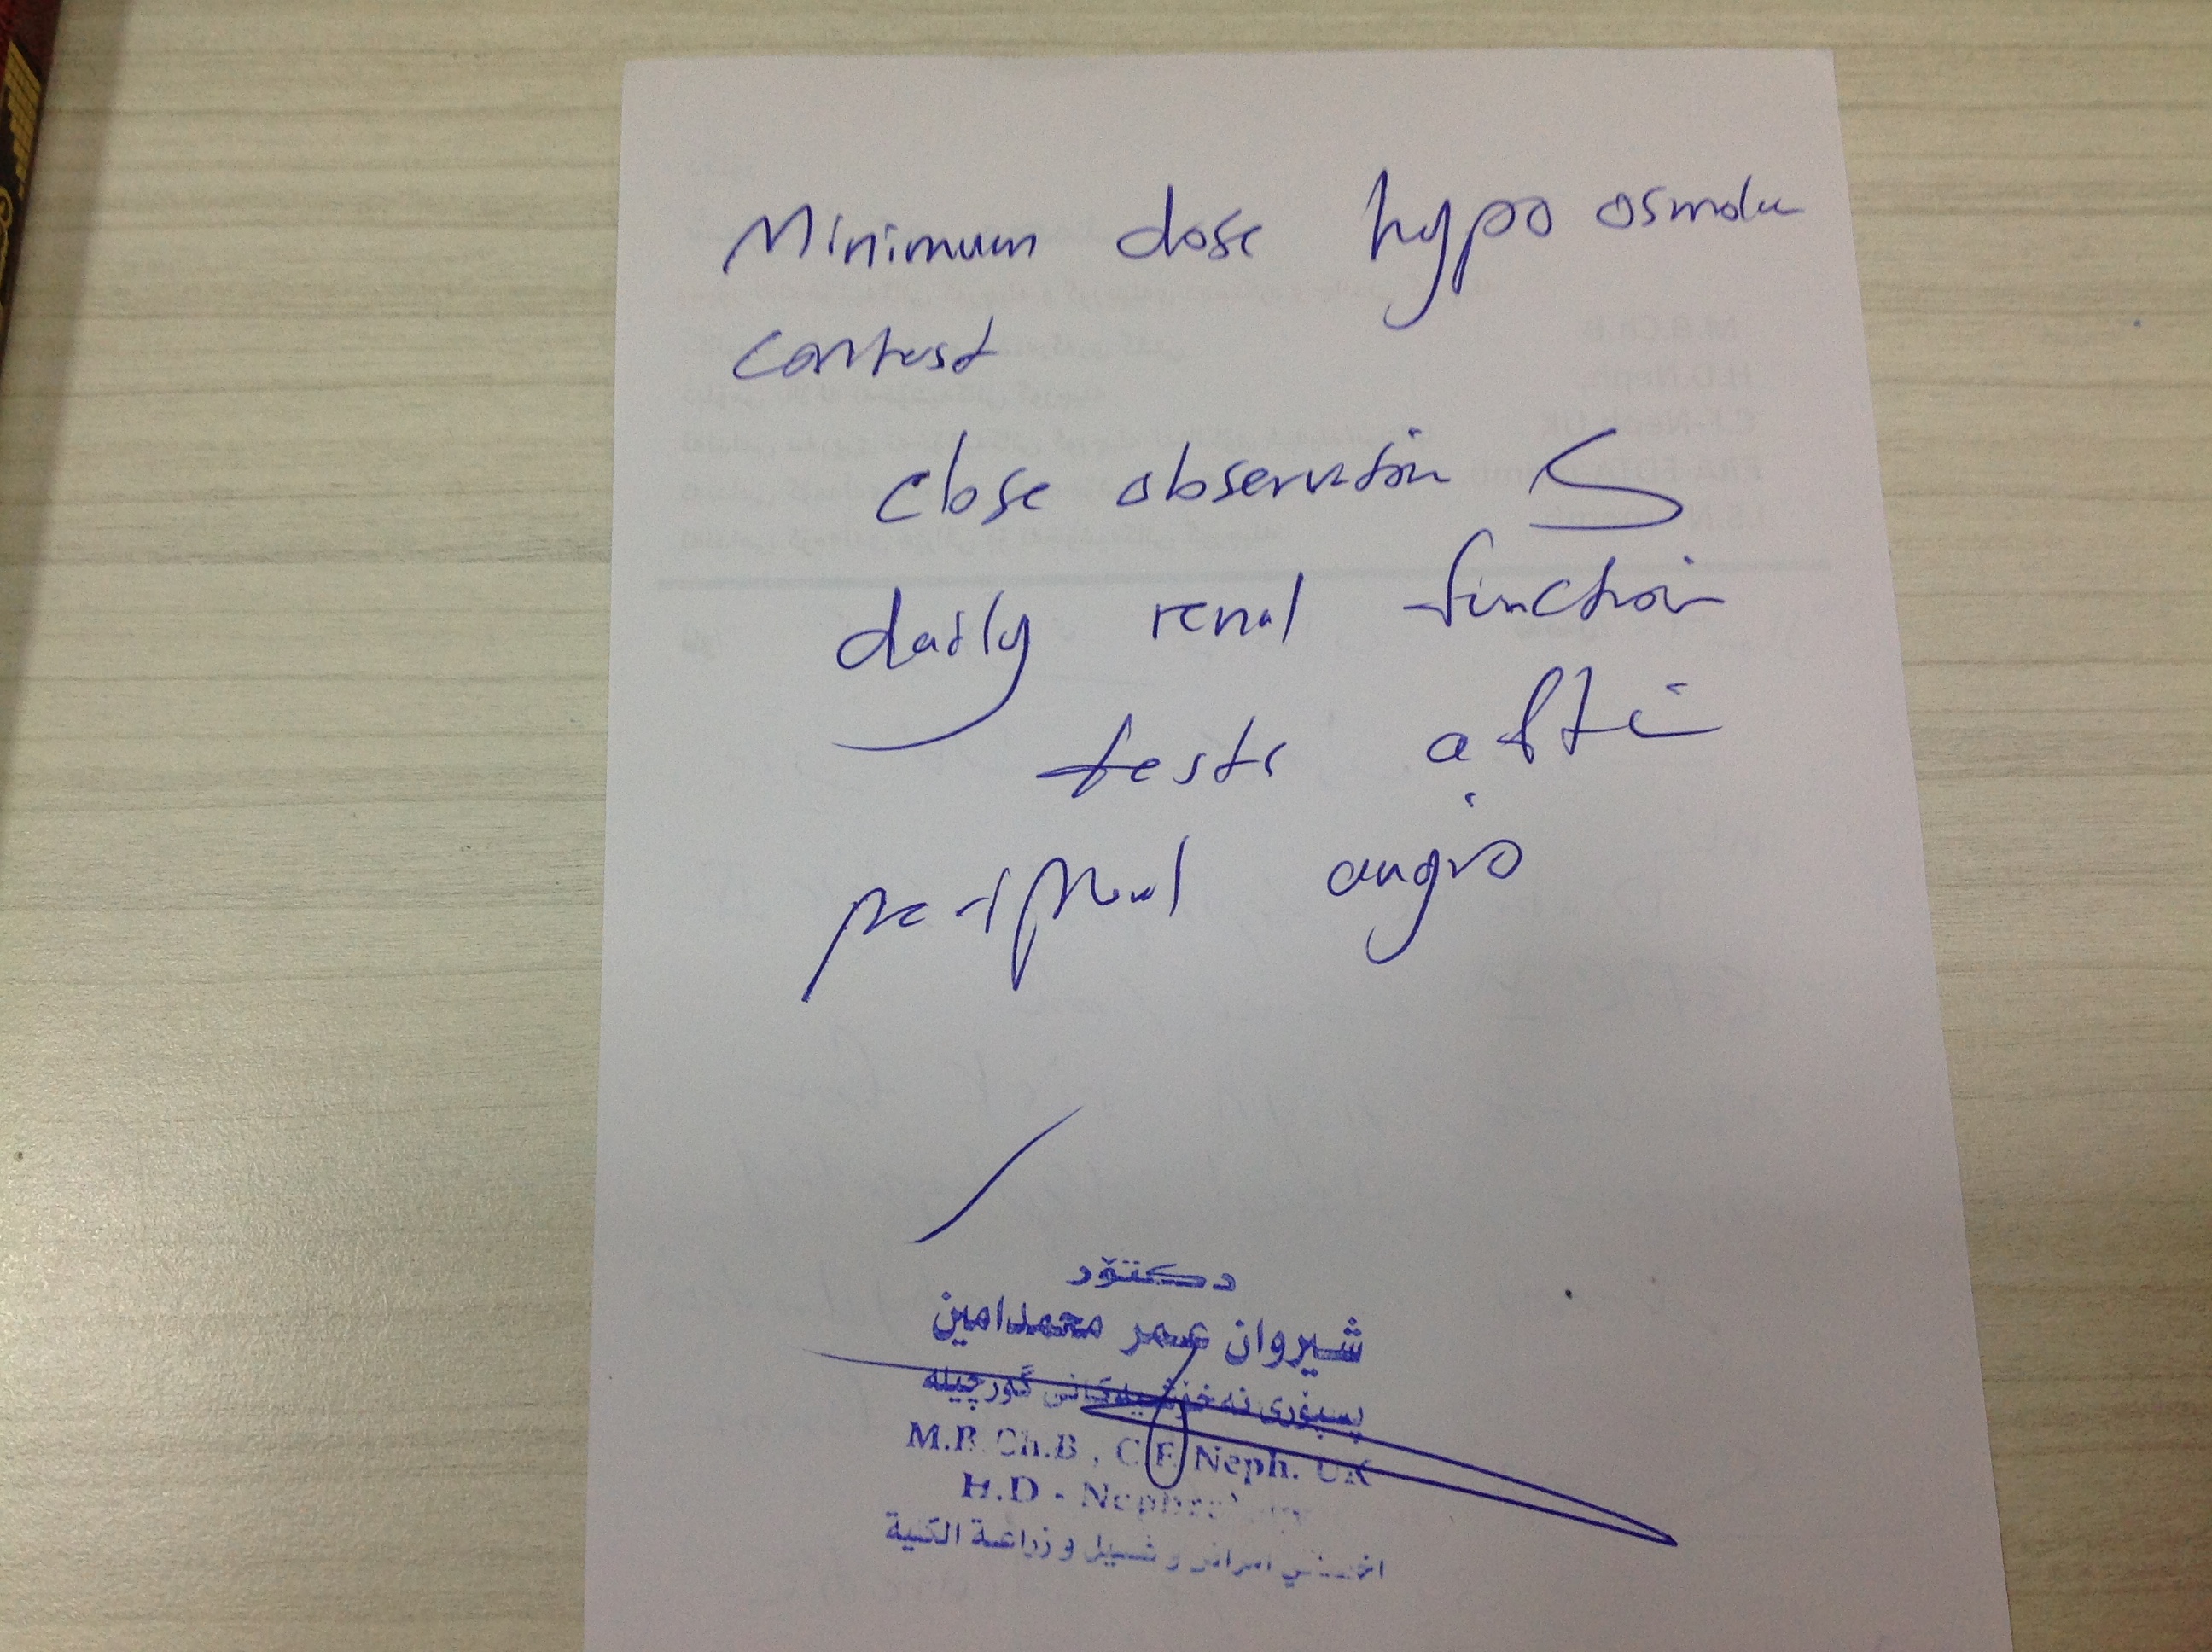 Minimum dose hypo osmolar
contrast
close observation
daily renal function
tests after
peripheral angio
دكتۆر
شيروان عمر محمدامين
پسپۆری نەخۆشیەکانی گورچیلە
M.B.Ch.B , C.F. Neph. UK
H.D - Nephrology
امراض و غسيل و زراعة الكلية